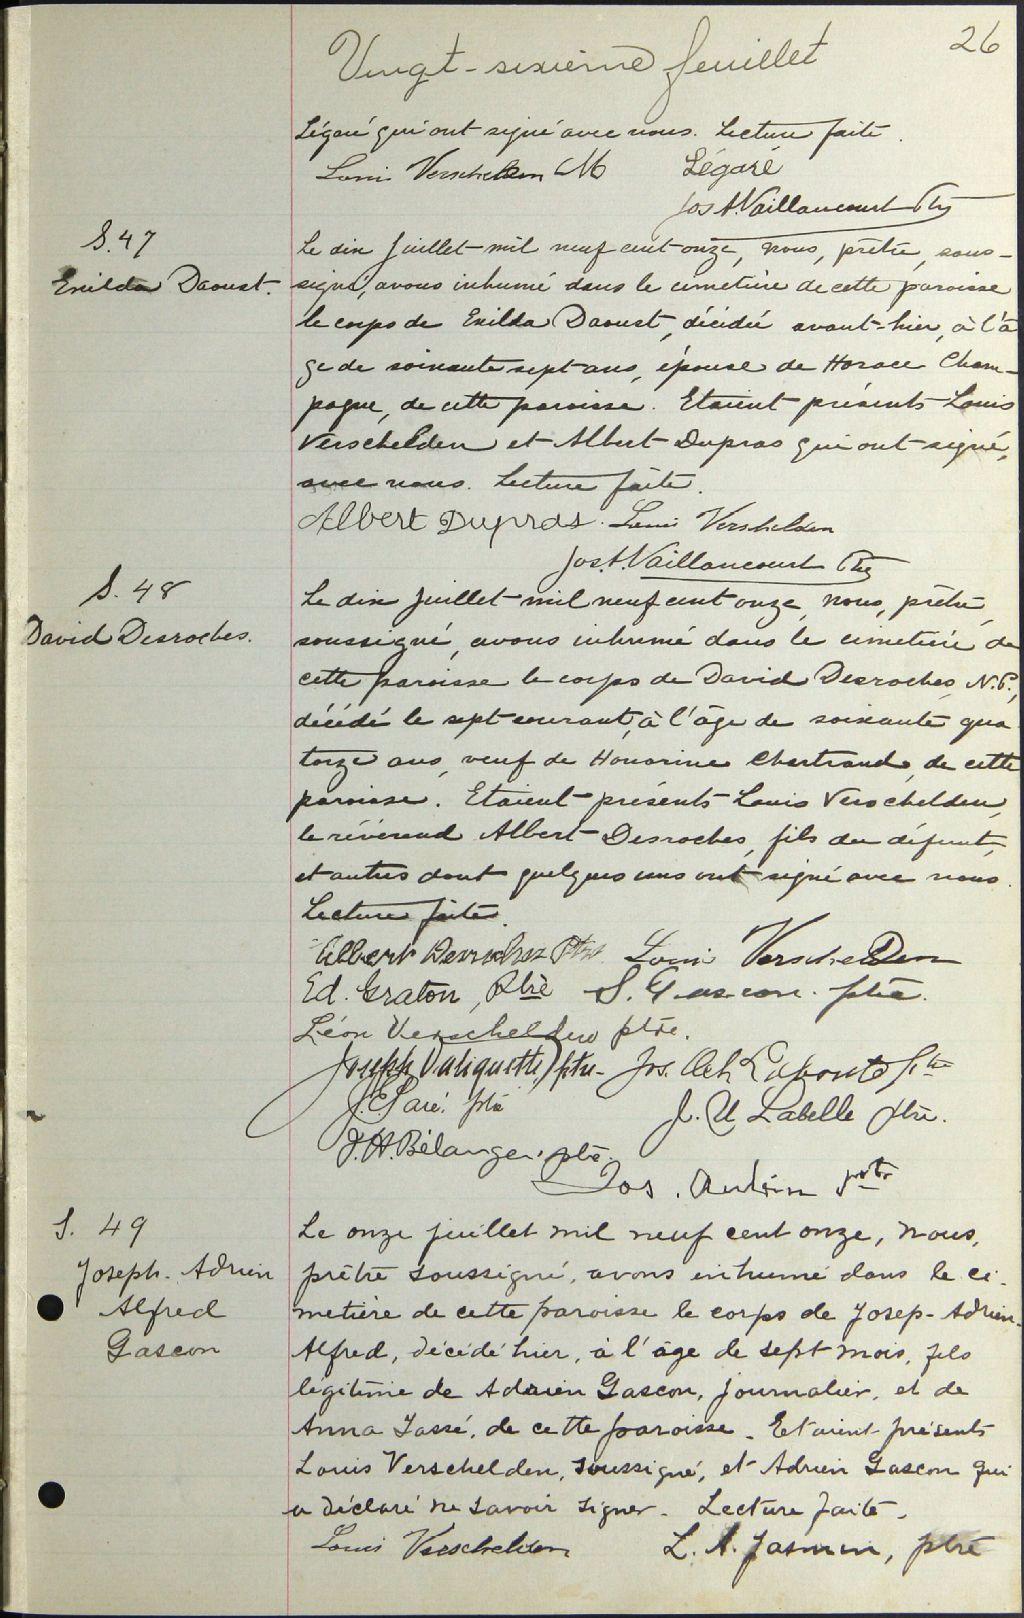 26
Vingt-sixième feuillet
Légaré qui ont signé avec nous. Lecture faite.
Louis Verschelden M Légaré
Jos A. Vaillancourt Ptre
S. 47
Exilda Daoust.
Le dix Juillet mil neuf cent onze, nous, prêtre, sous-
signé, avons inhumé dans le cimetière de cette paroisse
le corps de Exilda Daoust, décédée avant-hier, à l'â
ge de soixante sept ans, épouse de Horace Cham-
pagne, de cette paroisse. Etaient présents Louis
Verschelden et Albert Dupras qui ont signé,
avec nous. Lecture faite.
Albert Dupras. Louis Verschelden
Jos. A. Vaillancourt Ptre
S. 48
David Desroches.
Le dix Juillet mil neuf cent onze, nous, prêtre,
soussigné, avons inhumé dans le cimetière de
cette paroisse le corps de David Desroches, N.P.,
décédé le sept courant, à l'âge de soixante qua
torze ans, veuf de Honorine Chartrand, de cette
paroisse. Etaient présents Louis Verschelden,
le révérend Albert Desroches, fils du défunt,
et autres dont quelques uns ont signé avec nous.
Lecture faite.
Albert Desroches Ptre Louis Verschelden
Ed. Graton, Ptre S. Gascon. ptre.
Léon Verschelden ptre.
Joseph Valiquette ptre - Jos. Laporte Ptre
ptre J. U. Labelle ptre.
J. H. Bélanger, ptre.
Jos. Aubin ptre
S. 49
Joseph-Adrien
Alfred
Gascon
Le onze juillet mil neuf cent onze, nous,
prêtre soussigné, avons inhumé dans le ci-
metière de cette paroisse le corps de Josep-Adrien-
Alfred, décédé hier, à l'âge de sept mois, fils
légitime de Adrien Gascon, journalier, et de
Anna Jassé, de cette paroisse. Etaient présents
Louis Verschelden, soussigné, et Adrien Gascon qui
a déclaré ne savoir signer. Lecture faite.
Louis Verschelden L. A. Jasmin, ptre